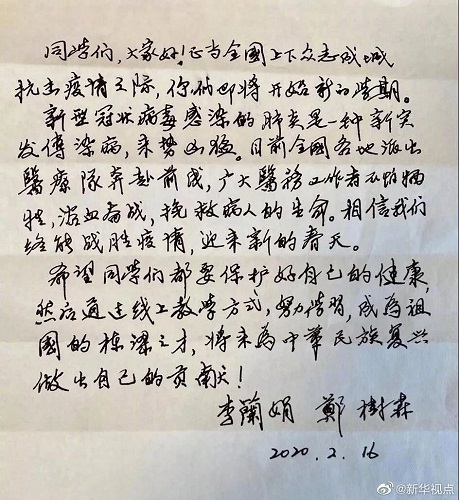 同学们，大家好！正当全國上下众志成城
抗击疫情之际，你们即将开始新的学期。
新型冠状病毒感染的肺炎是一种新突
发傳染病，来势凶猛。目前全国各地派出
醫療隊奔赴前线，广大醫務工作者不怕牺
牲，浴血奋战，挽救病人的生命。相信我们
终能战胜疫情，迎来新的春天。
希望同学们都要保护好自己的健康，
然后通过线上教学方式，努力学習，成為祖
國的栋梁之才，將来為中華民族复兴
做出自己的贡献！
李蘭娟 鄭樹森
2020.2.16
@新华视点